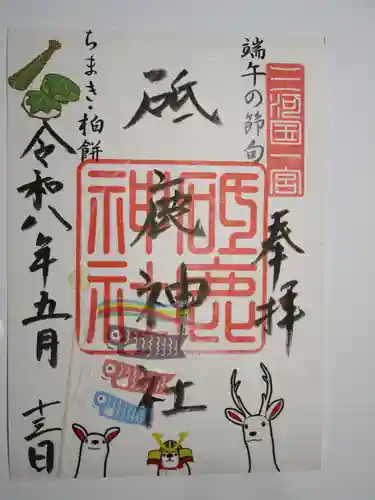 三河国一宮
端午の節句
奉拝
砥鹿神社
砥鹿神社
ちまき・柏餅
令和八年五月十三日